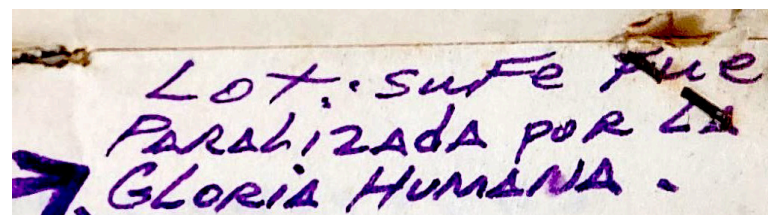 Lot.: su Fe Fue
PARALizADA poR LA
GLORiA HUMANA.